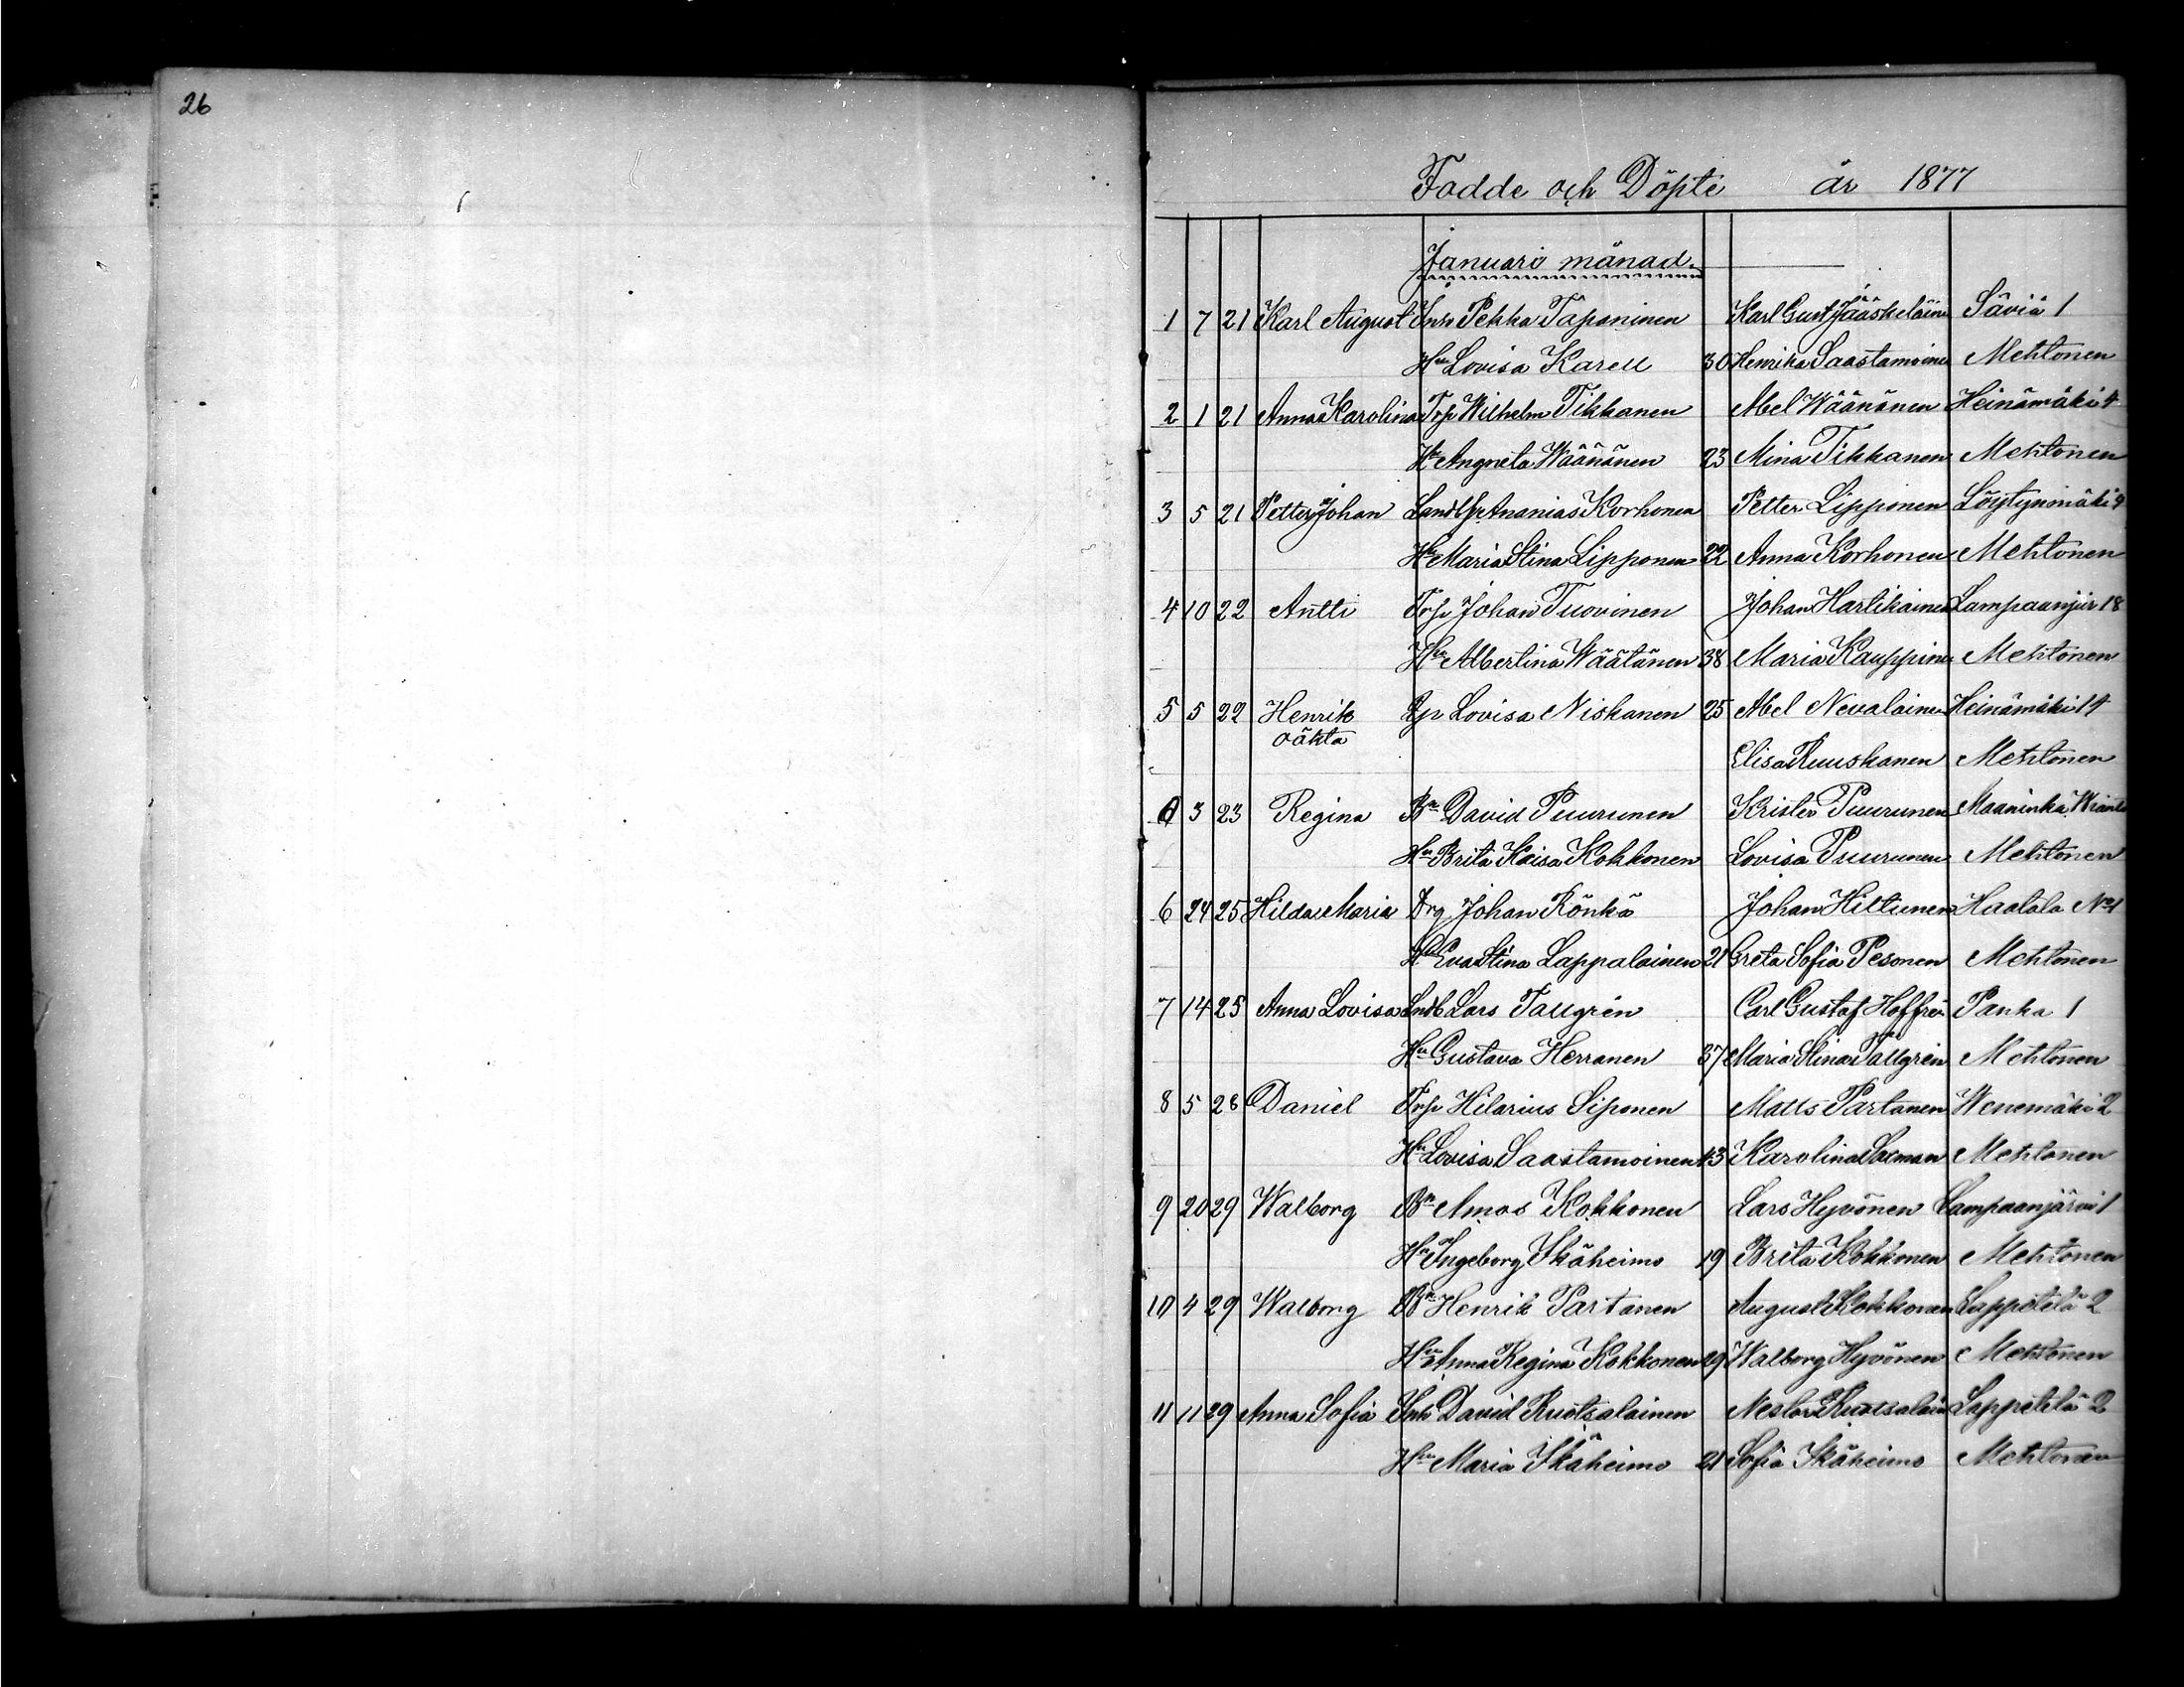 26
Fodde och Döpte år 1877
Januari månad.
1 7 21 Karl August Inh Pekka Taponinen Karl Gust Jääskeläin Säviä 1
Hu Lovisa Karell 30 Henrika Saastamoinen Mehtonen
2 1 21 Anna Karolina Trp Wilhelm Tikkanen Abel Wäänänen Heinämäki 4
Hu Angneta Wäänänen 23 Mina Tikkanen Mehtonen
3 5 21 Petter Johan Landb Ananias Korhonen Petter Lipponen Löytynmäki 4
Hu Maria Stina Lipponen 22 Anna Korhonen Mehtonen
4 10 22 Antti Trp Johan Tuovinen Johan Hartikainen Lampaanjär 18
Hu Albertina Wäätänen 38 Maria Kauppinen Mehtonen
5 5 22 Henrik Lovisa Niskanen 25 Abel Nevalainen Heinämäki 14
oäkta
Elisa Ruuskanen Mehtonen
3 23 Regina Bn David Puurunen Krister Puurunen Maaninka
Hu Brita Kaisa Kokkonen Lovisa Puurunen Mehtonen
6 24 25 Hilda Maria Drg Johan Rönkä Johan Hiltunen Haatala No 1
Hu Eva Stina Lappalainen 21 Greta Sofia Pesonen Mehtonen
7 14 25 Anna Lovisa Lndb Lars Tallgrén Carl Gustaf Hoffrén Panka 1
Hu Gustava Herranen 37 Maria Stina Tallgrén Mehtonen
8 5 28 Daniel Trp Hilarius Siponen Matts Partanen Wenemäki 2
Hu Lovisa Saastamoinen 43 Karolina Mehtonen
9 20 29 Walborg Bn Amos Kokkonen Lars Hyvönen Lampaanjärvi 1
Hu Ingeborg Ikäheimo 19 Brita Kokkonen Mehtonen
10 4 29 Walborg Bn Henrik Partanen August Kokkonen Lappetelä 2
Hu Anna Regina Kokkonen 29 Walborg Hyvönen Mehtonen
11 11 29 Anna Sofia Inh David Ruotsalainen Nestor Ruotsalain Lappetelä 2
Hu Maria Ikäheimo 21 Sofia Ikäheimo Mehtonen